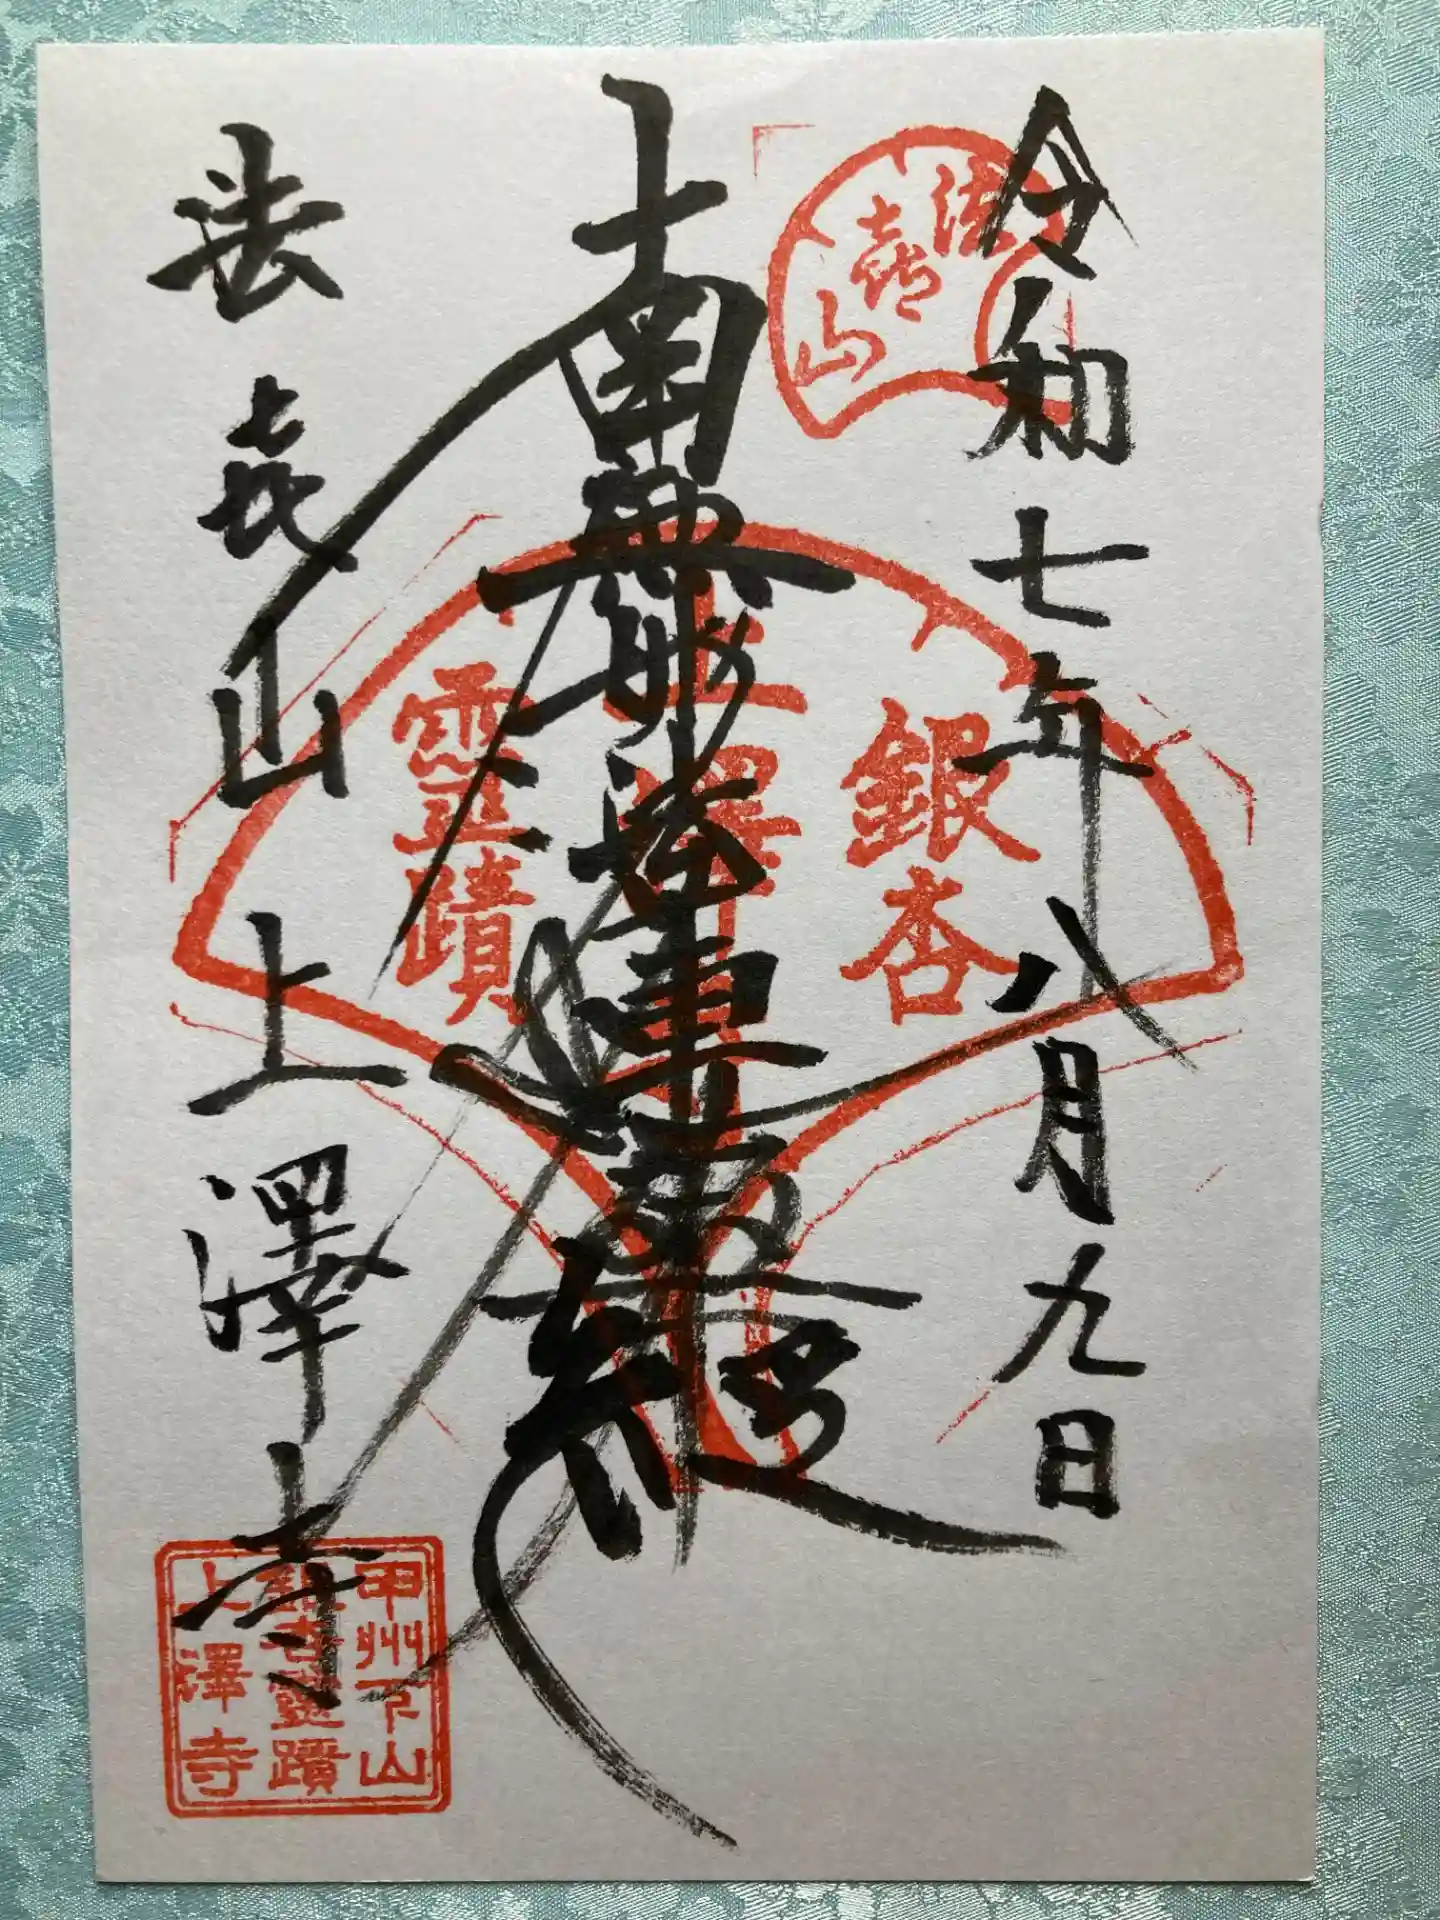 令和七年八月九日
法喜山
南無妙法蓮華経
銀杏
上澤寺
靈蹟
法喜山上澤寺
甲州下山
銀杏靈蹟
上澤寺